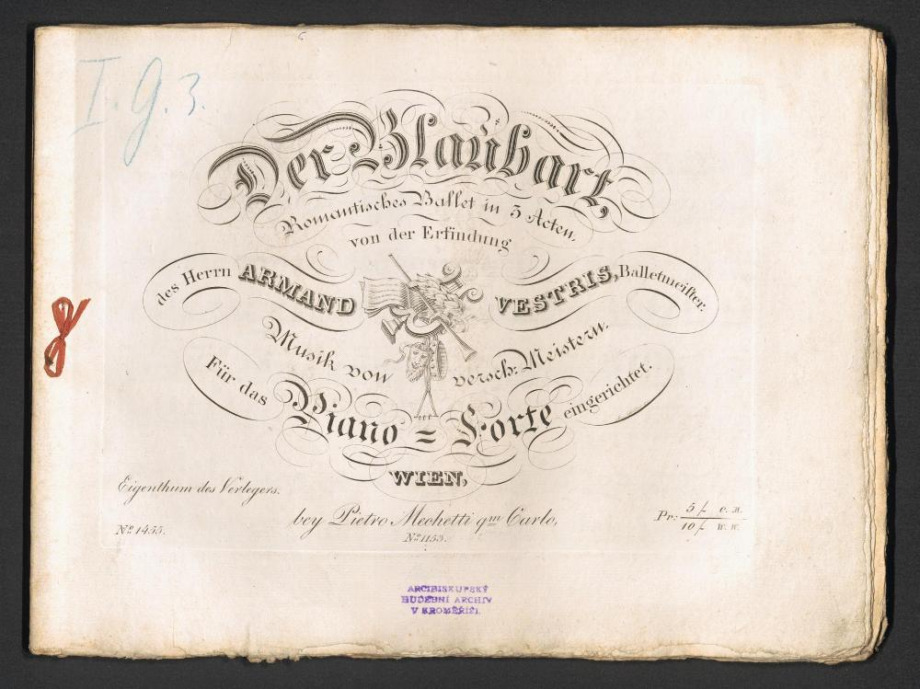 I. G. 3.
Der Blaubart,
Romantisches Ballet in 3 Acten,
von der Erfindung
des Herrn ARMAND VESTRIS, Balletmeister.
Musik von versch: Meistern.
Für das Piano=Forte eingerichtet.
WIEN,
Eigenthum des Verlegers.
bey Pietro Mechetti qm Carlo.
Nº 1455.
Nº 1153.
Pr: 5 f. C. M.
10 f. W. W.
ARCIBISKUPSKÝ
HUDEBNÍ ARCHIV
V KROMĚŘÍŽI